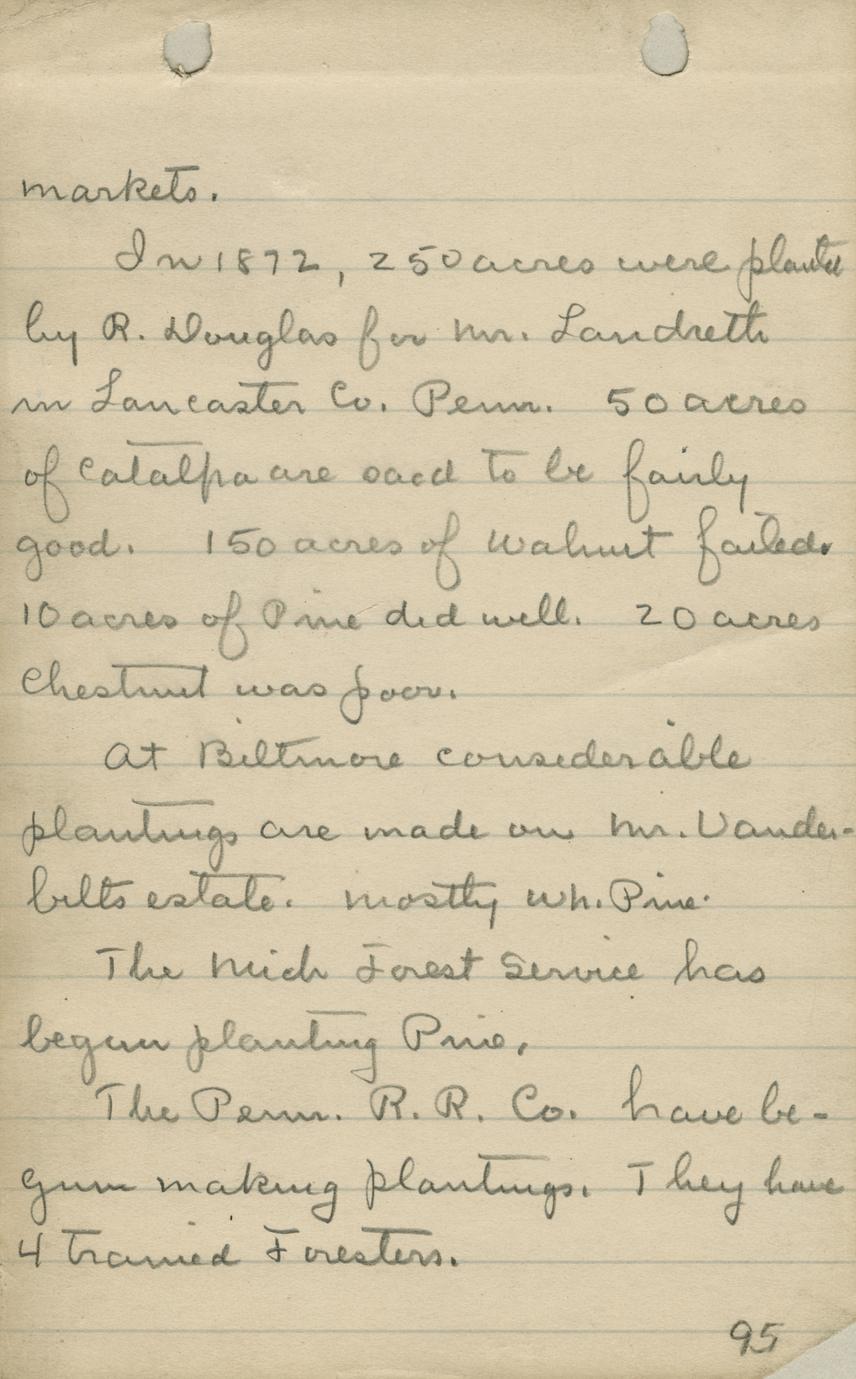 markets.
In 1872, 250 acres were planted
by R. Douglas for Mr. Landreth
in Lancaster Co. Penn. 50 acres
of Catalpa are said to be fairly
good. 150 acres of Walnut failed.
10 acres of Pine did well. 20 acres
Chestnut was poor.
At Biltmore considerable
plantings are made on Mr. Vander-
bilts estate. mostly Wh. Pine.
The Mich Forest Service has
begun planting Pine.
The Penn. R. R. Co. have be-
gun making plantings. They have
4 trained Foresters.
95